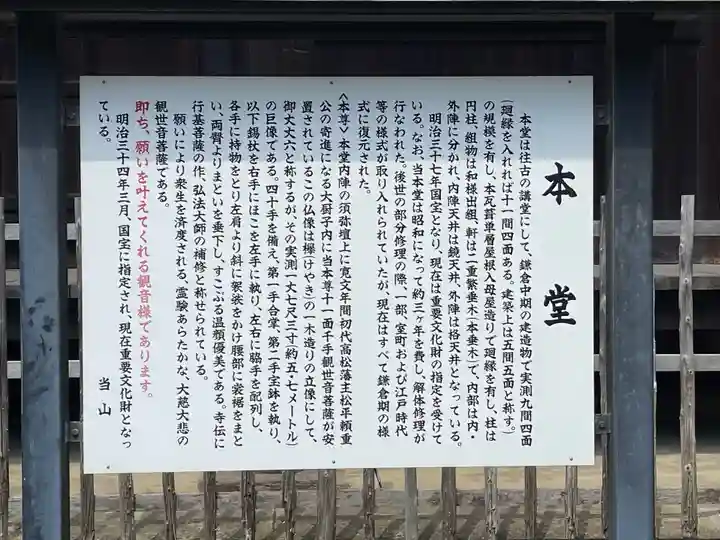 本堂
本堂は往古の講堂にして、鎌倉中期の建造物で実測九間四面
(廻縁を入れれば十一間四面ある。建築上は五間五面と称す。)
の規模を有し、本瓦葺単層屋根入母屋造りで廻縁を有し、柱は
円柱、組物は和様出組、軒は二重繁垂木(本垂木)で、内部は内・
外陣に分かれ、内陣天井は鏡天井、外陣は格天井となっている。
明治三十七年国宝となり、現在は重要文化財の指定を受けて
いる。なお、当本堂は昭和になって約三ヶ年を費し、解体修理が
行なわれた。後世の部分修理の際、一部、室町および江戸時代
等の様式が取り入れられていたが、現在はすべて鎌倉期の様
式に復元された。
<本尊>本堂内陣の須弥壇上に寛文年間初代高松藩主松平頼重
公の寄進になる大厨子内に当本尊十一面千手観世音菩薩が安
置されているこの仏像は欅(けやき)の一木造りの立像にして、
御丈大六と称するが、その実測一丈七尺三寸(約五・七メートル)
の巨像である。四十手を備え、第一手合掌、第二手宝鉢を執り、
以下錫杖を右手にほこを左手に執り、左右に脇手を配列し、
各手に持物をとり左肩より斜に袈裟をかけ腰部に裳裾をまと
い、両臂よりまといを垂下し、すこぶる温顔優美である。寺伝に
行基菩薩の作、弘法大師の補修と称せられている。
願いにより衆生を済度される、霊験あらたかな、大慈大悲の
観世音菩薩である。
即ち、願いを叶えてくれる観音様であります。
明治三十四年三月、国宝に指定され、現在重要文化財となっ
ている。
当山